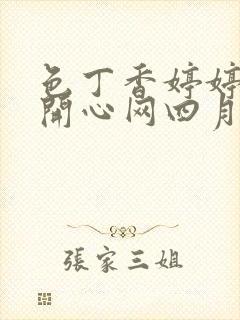 色丁香婷婷
開心网四月
張家三姐